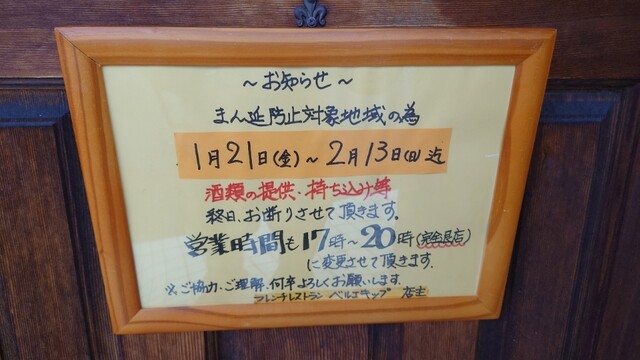 ～お知らせ～
まん延防止対象地域の為
1月21日(金)～2月13日(日)迄
酒類の提供・持ち込み等
終日、お断りさせて頂きます。
営業時間も17時～20時(完全閉店)
に変更させて頂きます。
※ご協力・ご理解、何卒よろしくお願いします。
フレンチレストラン ベルエキップ 店主